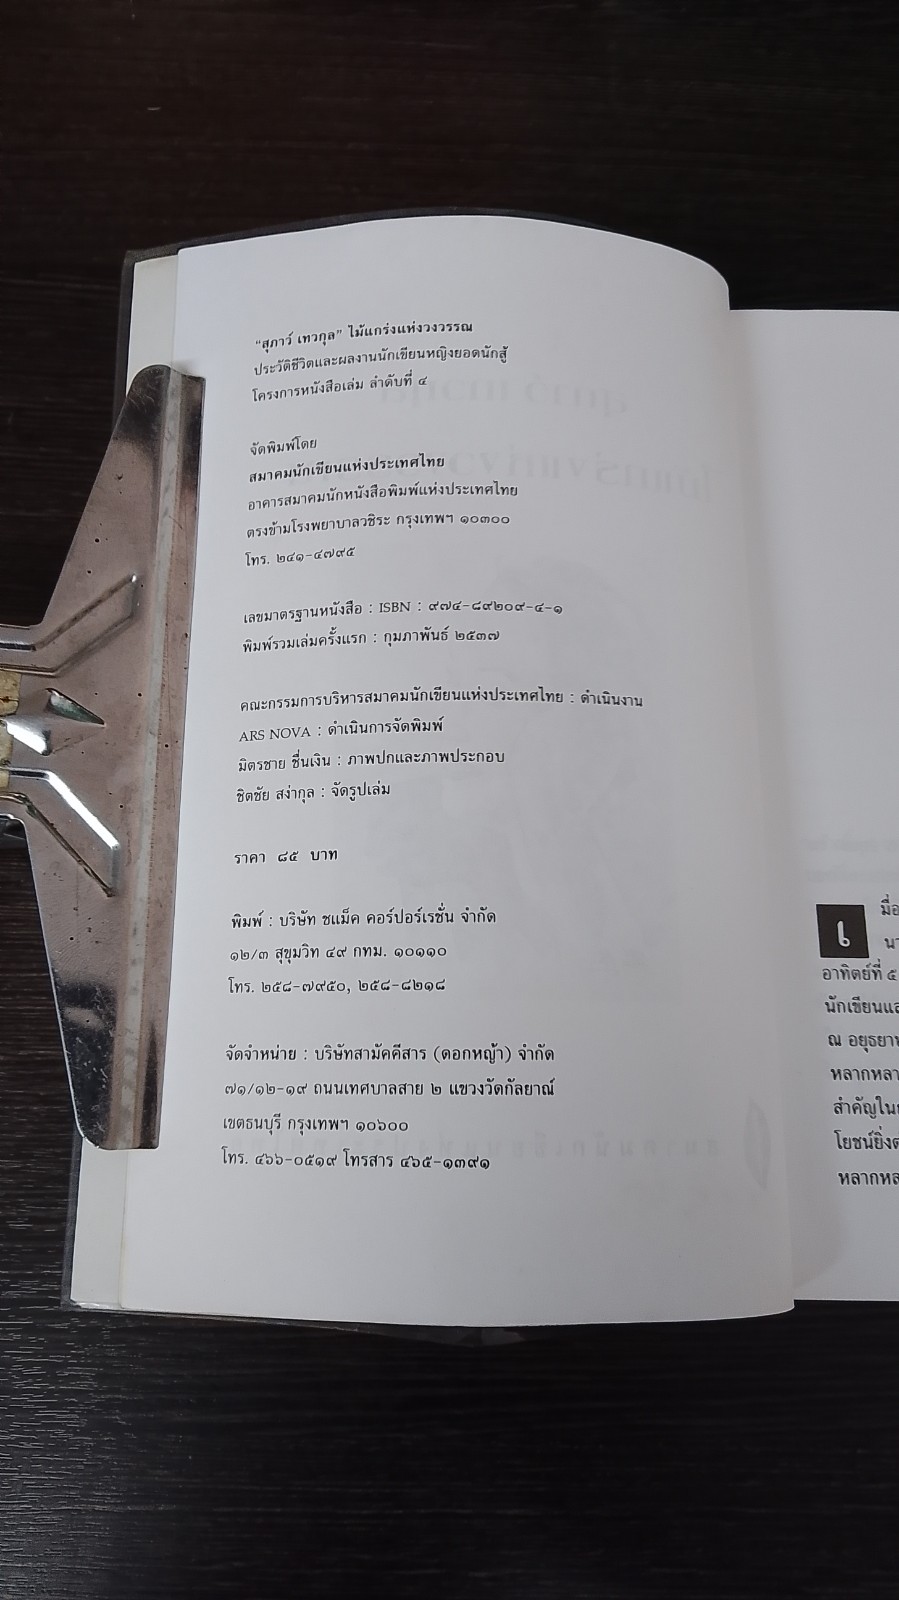 "สุภาว์ เทวกุล" ไม้แกร่งแห่งวงวรรณ
ประวัติชีวิตและผลงานนักเขียนหญิงยอดนักสู้
โครงการหนังสือเล่ม ลำดับที่ ๔
จัดพิมพ์โดย
สมาคมนักเขียนแห่งประเทศไทย
อาคารสมาคมนักหนังสือพิมพ์แห่งประเทศไทย
ตรงข้ามโรงพยาบาลวชิระ กรุงเทพฯ ๑๐๓๐๐
โทร. ๒๔๑-๔๗๙๕
เลขมาตรฐานหนังสือ : ISBN : ๙๗๔-๘๙๒๐๙-๔-๑
พิมพ์รวมเล่มครั้งแรก : กุมภาพันธ์ ๒๕๓๗
คณะกรรมการบริหารสมาคมนักเขียนแห่งประเทศไทย : ดำเนินงาน
ARS NOVA : ดำเนินการจัดพิมพ์
มิตรชาย ชื่นเงิน : ภาพปกและภาพประกอบ
ชิตชัย สง่ากุล : จัดรูปเล่ม
ราคา ๘๕ บาท
พิมพ์ : บริษัท ชแม็ค คอร์ปอร์เรชั่น จำกัด
๑๒/๓ สุขุมวิท ๔๙ กทม. ๑๐๑๑๐
โทร. ๒๕๘-๗๙๕๐, ๒๕๘-๘๒๑๘
จัดจำหน่าย : บริษัทสามัคคีสาร (ดอกหญ้า) จำกัด
๗๑/๑๒-๑๙ ถนนเทศบาลสาย ๒ แขวงวัดกัลยาณ์
เขตธนบุรี กรุงเทพฯ ๑๐๖๐๐
โทร. ๔๖๖-๐๕๑๙ โทรสาร ๔๖๕-๑๓๙๑
เมื่อ
อาทิตย์ที่ ๕
นักเขียนแล
ณ อยุธยา
หลากหลา
สำคัญใน
โยชน์ยิ่ง
หลากหล